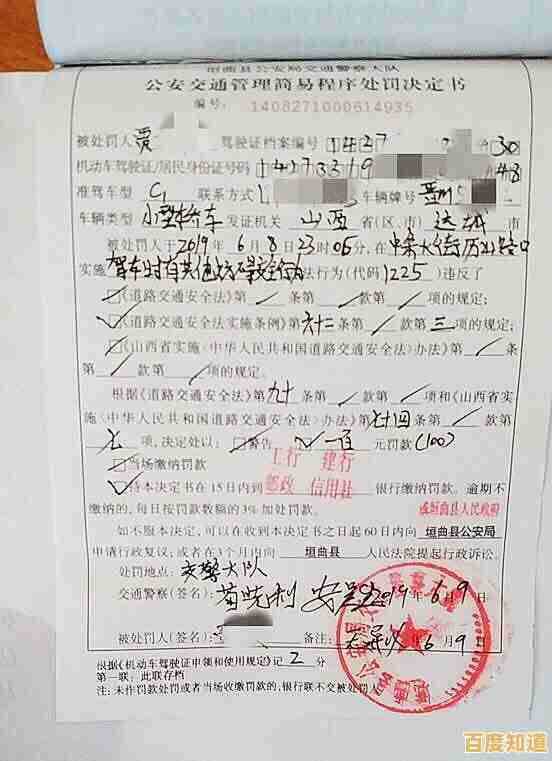 垣曲县公安局交通警察大队
公安交通管理简易程序处罚决定书
编号：1408271000614935
被处罚人 贾 驾驶证档案编号 1427 30
机动车驾驶证/居民身份证号码 14273319 48
准驾车型 C1 联系方式 车辆牌号 晋M
车辆类型 小型轿车 发证机关 山西 省(区、市) 运城 市
被处罚人于2019年6月8日23时06分，在中条大街历山路口
实施 驾车时有其他妨碍安全行为 违法行为(代码1225)违反了
□《道路交通安全法》第 条第 款第 项的规定；
□《道路交通安全法实施条例》第六十二条第 款第三项的规定；
□《山西省实施〈中华人民共和国道路交通安全法〉办法》第 条
第 款第 项的规定。
根据《道路交通安全法》第九十条第 款第 项和《山西省实
施〈中华人民共和国道路交通安全法〉办法》第七十四条第 款第
七项，决定处以：□警告 一百元罚款(100)
□当场缴纳罚款
工行 建行
□持本决定书在15日内到 邮政 信用社 银行缴纳罚款。逾期不
缴纳的，每日按罚款数额的3%加处罚款。
或垣曲县人民政府
如不服本决定，可以在收到本决定书之日起60日内向 垣曲县公安局
申请行政复议；或者在3个月内向 垣曲县 人民法院提起行政诉讼。
处罚地点：交警大队
交通警察(签名) 2019年6月9日
被处罚人(签名) 备注： 年6月9日
根据《机动车驾驶证申领和使用规定》记2分
第一联：此联存档
注：未作罚款处罚或者当场收缴罚款的，银行联不交被处罚人。
百度知道